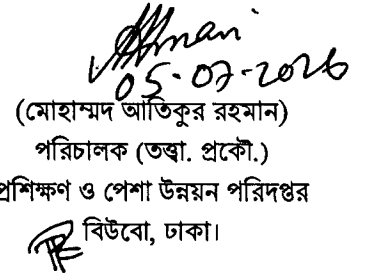 05-07-2026
(মোহাম্মদ আতিকুর রহমান)
পরিচালক (তত্ত্বা. প্রকৌ.)
প্রশিক্ষণ ও পেশা উন্নয়ন পরিদপ্তর
বিউবো, ঢাকা।